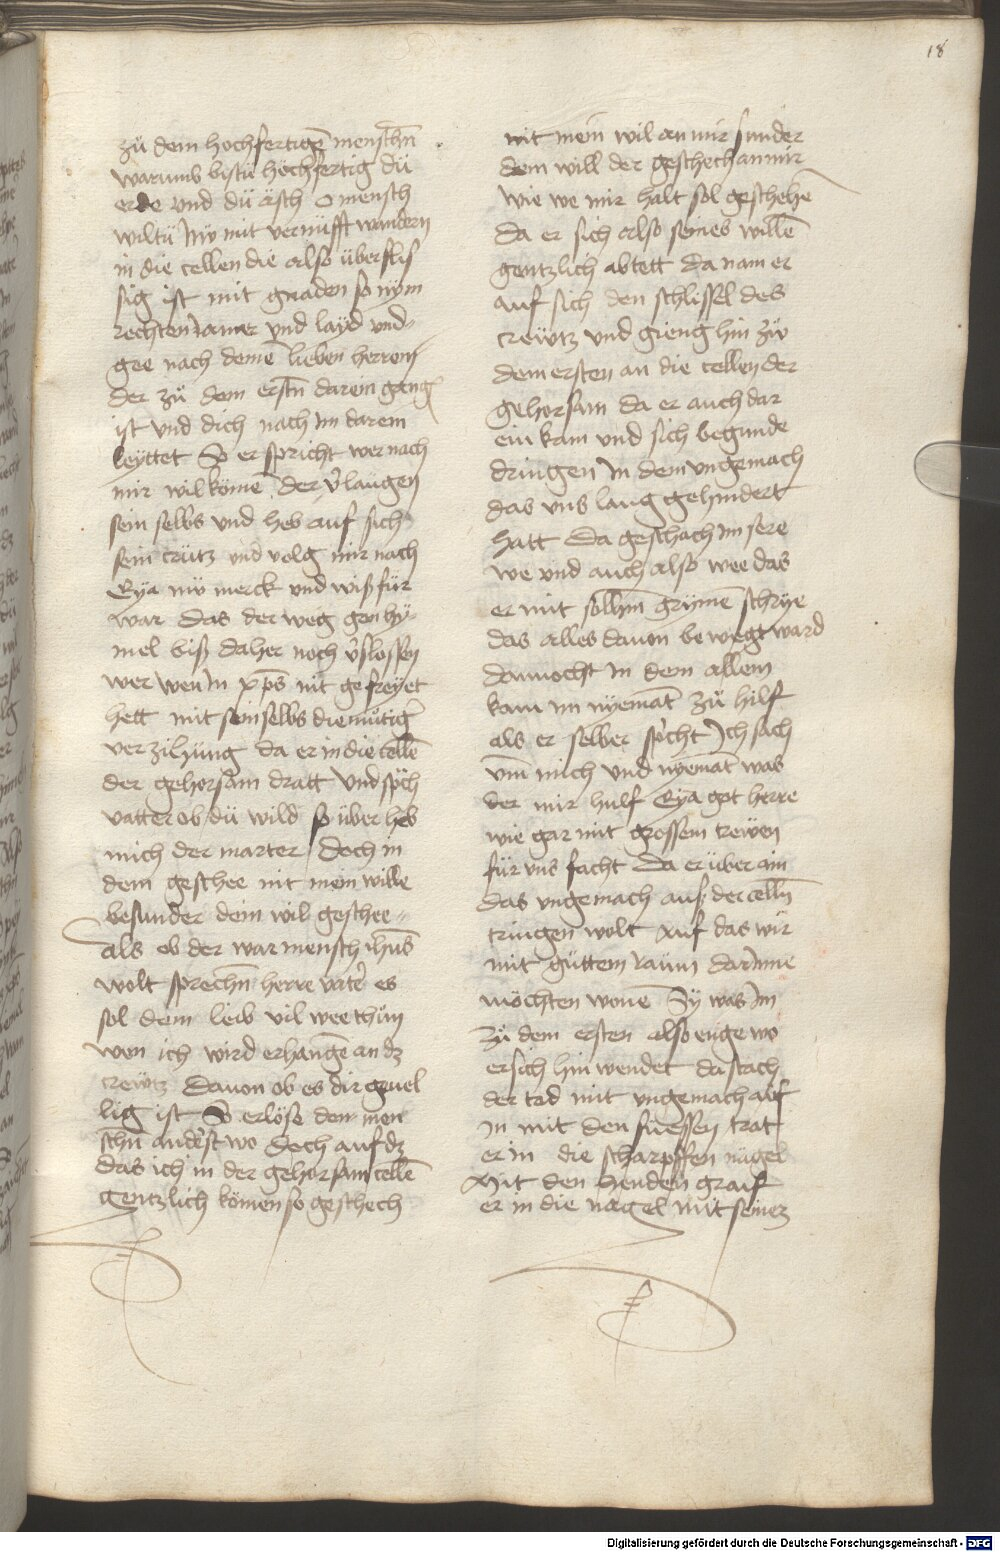 18
zů dem hochfertigē menschn̄
warumb bistu hochfertig dü
erde vnd dü äsch o mensch
wiltü nw mit vernüfft wandern
in die cellen die also überflis
sig ist mit gnaden so nym
rechten iamer vnd layd vnd
gee nach deinē lieben herren
der zů dem erstn̄ darein gang
ist vnd dich nach im darein
leyttet So er spricht wer nach
mir wil köme der v̓laugen
sein selbs vnd heb auf sich
sein crütz vnd volg mir nach
Eya nw merck vnd wiß für
war das der weg gen hÿ-
mel biß daher noch v̓slossen
wer wen in xp̄s nit gefreyet
hett mit sein selbs diemütig̓
verzilzüng da er in die cellē
der gehorsam dratt vnd spch
vatter ob dü wild so über heb
mich der marter doch in
dem geschee nit mein wille
besunder dein wil geschee
als ob der war mensch ihūs
wolt sprechn̄ herre vater̓ es
sol dem leib vil wee thün
wen ich wird erhangē an dz
creẅtz Dauon ob es dir geuel
lig ist So erlöse den men
schn̄ anderst wo doch auf dz
das ich in der gehorsam cellē
gentzlich kömen so geschech
nit mein wil an mir sunder
dein will der geschech an mir
wie we mir halt sol geschehē
Da er sich also seines willē
gentzlich abtett da nam er
auf sich den schlissel des
creẅtz vnd gieng hin zü
dem ersten an die cellen der
gehorsam da er auch dar
ein kam vnd sich begunde
dringen in dem vngemach
das vns lang gehindert
hatt Da geschach im sere
we vnd auch also wee das
er mit sollym̄ grymē schrye
das alles dauon bewegt ward
dannocht in dem allem
kam im nyemāt zü hilf
als er selber sp̓cht Ich sach
vm̄ mich vnd nyemāt was
der mir hulf Eya got herre
wie gar mit grossem treẅen
für vns facht Da er über ain
das vngemach auß der celln̄
tringen wolt auf das wir
mit güttem raum dar inne
möchten wonē Sy was im
zü dem ersten also enge wo
er sich hin wendet da stach
der tod mit vngemach auf
in mit den füessen trat
er in die scharpffen nagel
Mit den henden graif
er in die nagel mit seinez
Digitalisierung gefördert durch die Deutsche Forschungsgemeinschaft - DFG